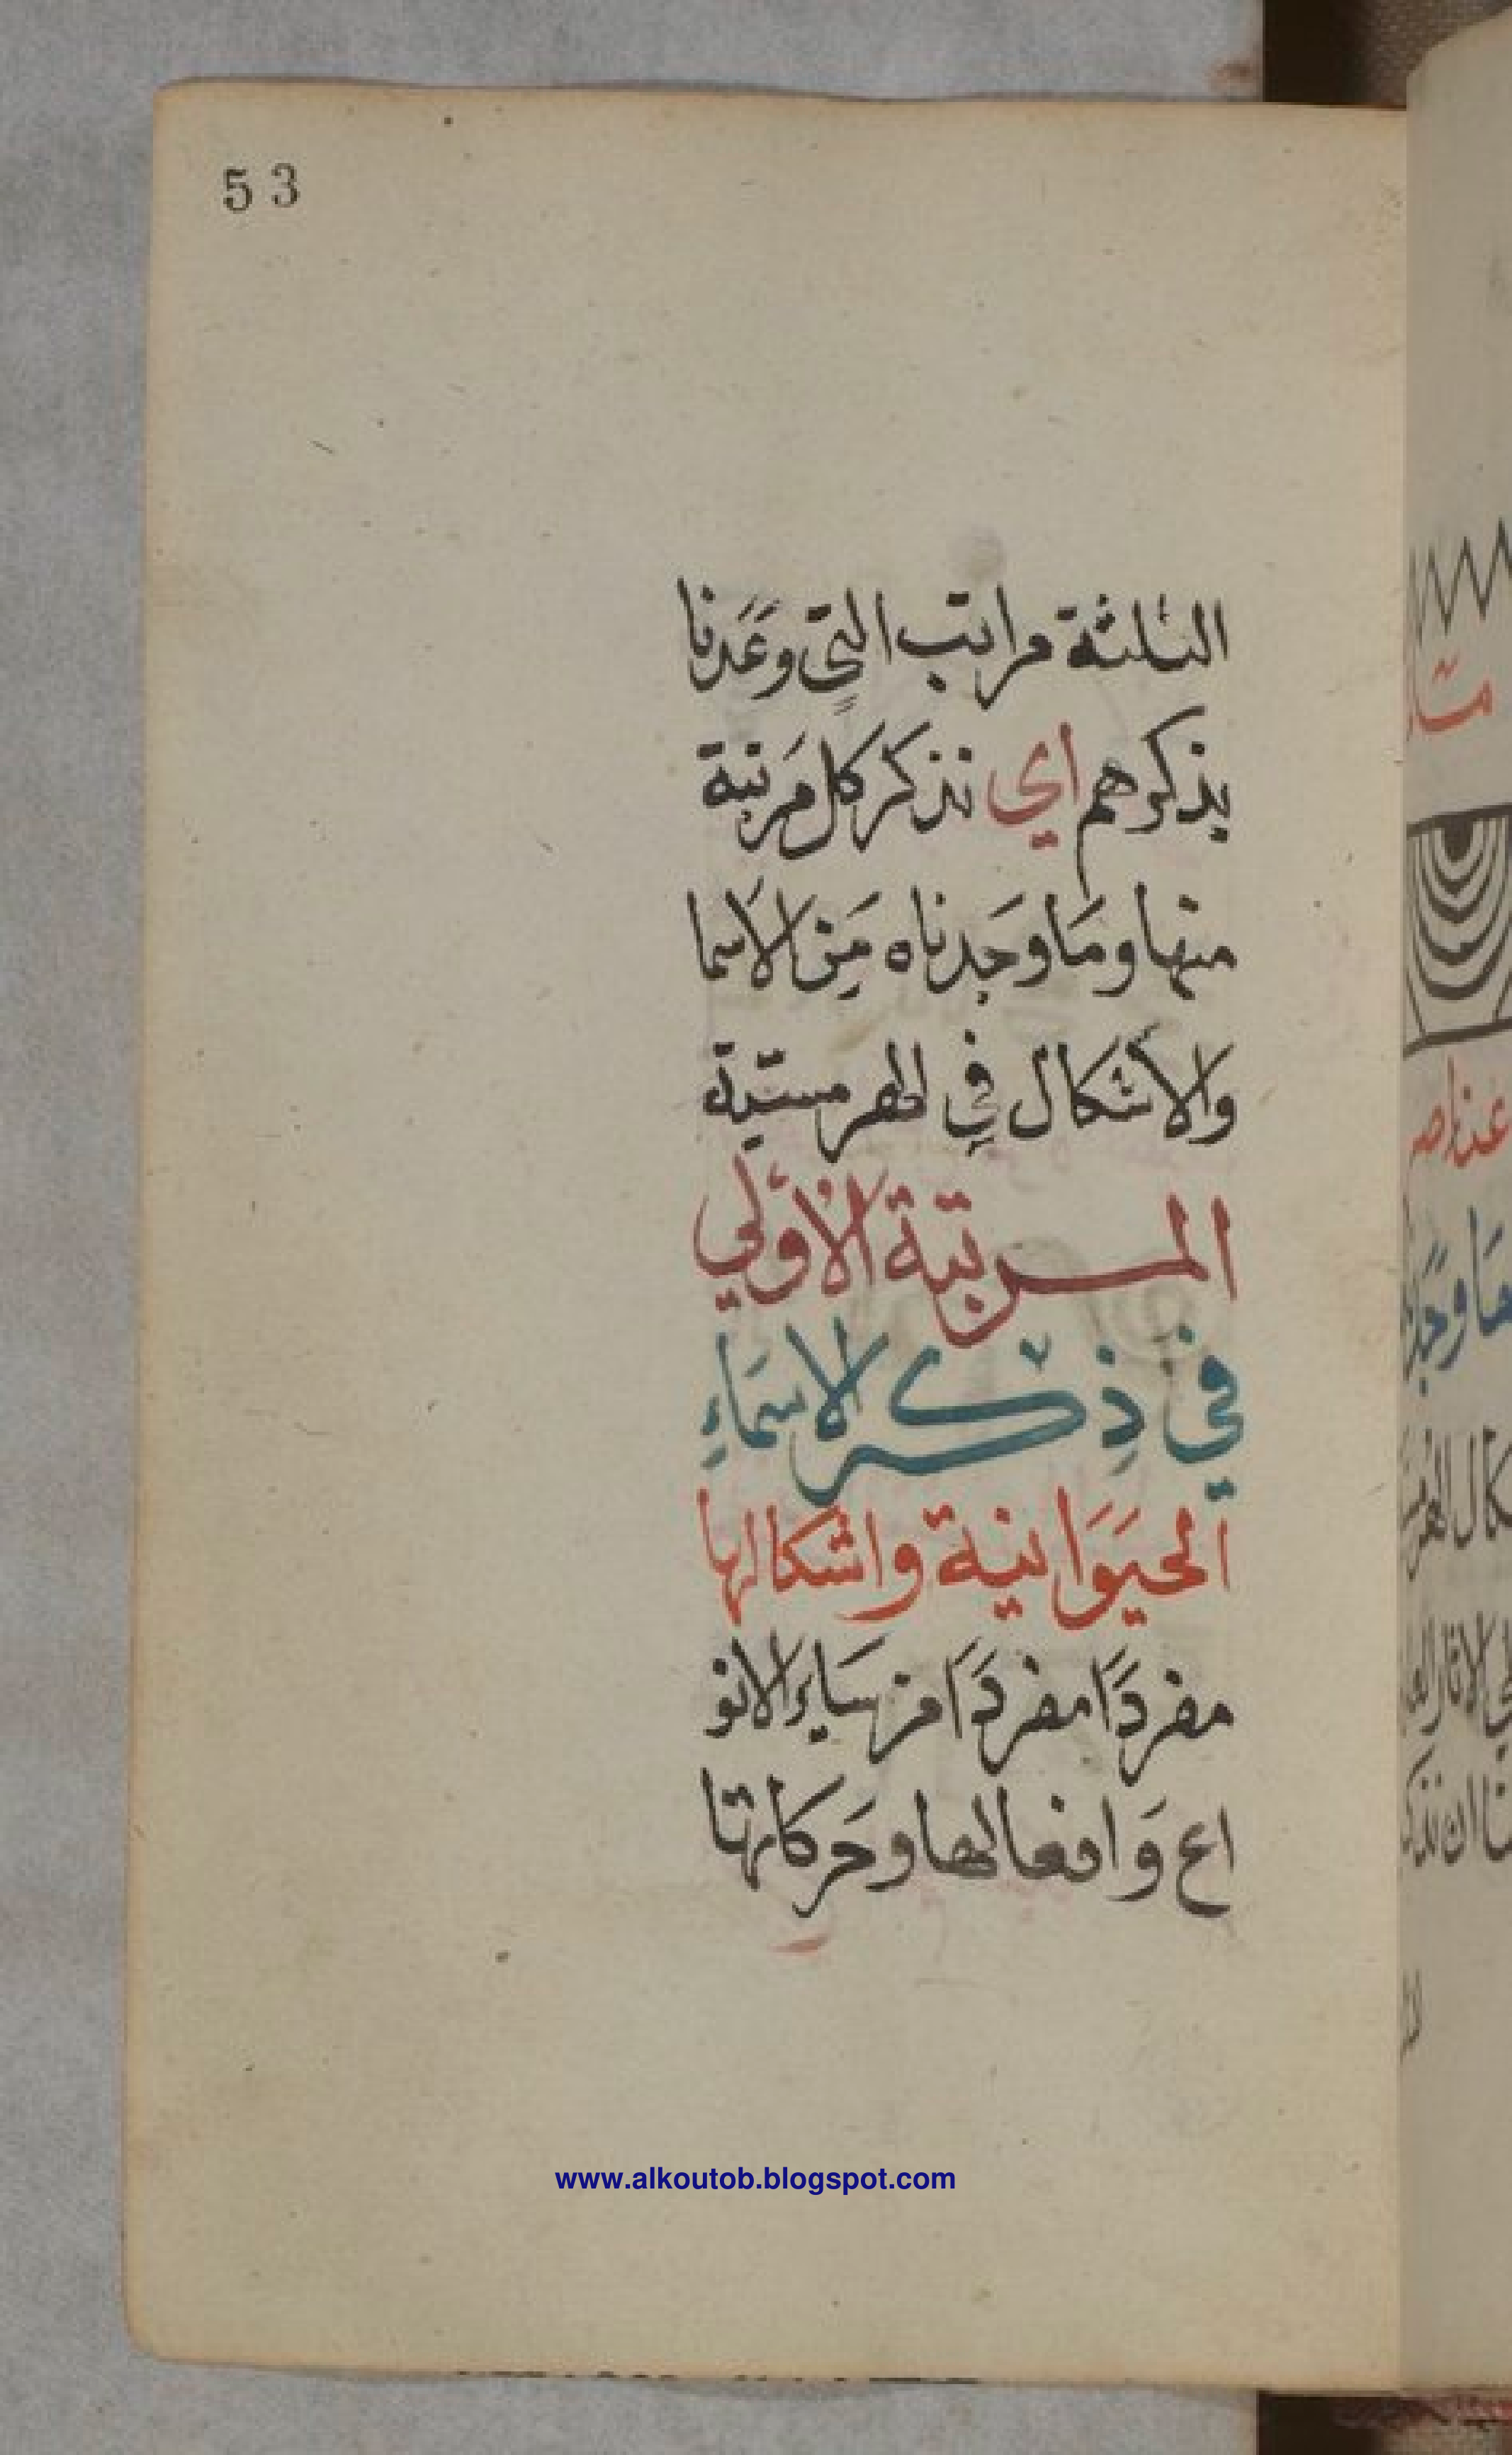 53
الثلثة مراتب التي وعَدَنا
بذكرهم اي نذكر كل مَرتبة
منها ومَا وجَدناه مَن الاسما
والأشكال في الهرمسيّة
المرتبة الأوّلي
في ذِكر الاسمَاءِ
الحيَوَانية واشكالها
مفردًا مفردًا من سَاير الانو
اع وَافعالها وحَركاتها
www.alkoutob.blogspot.com